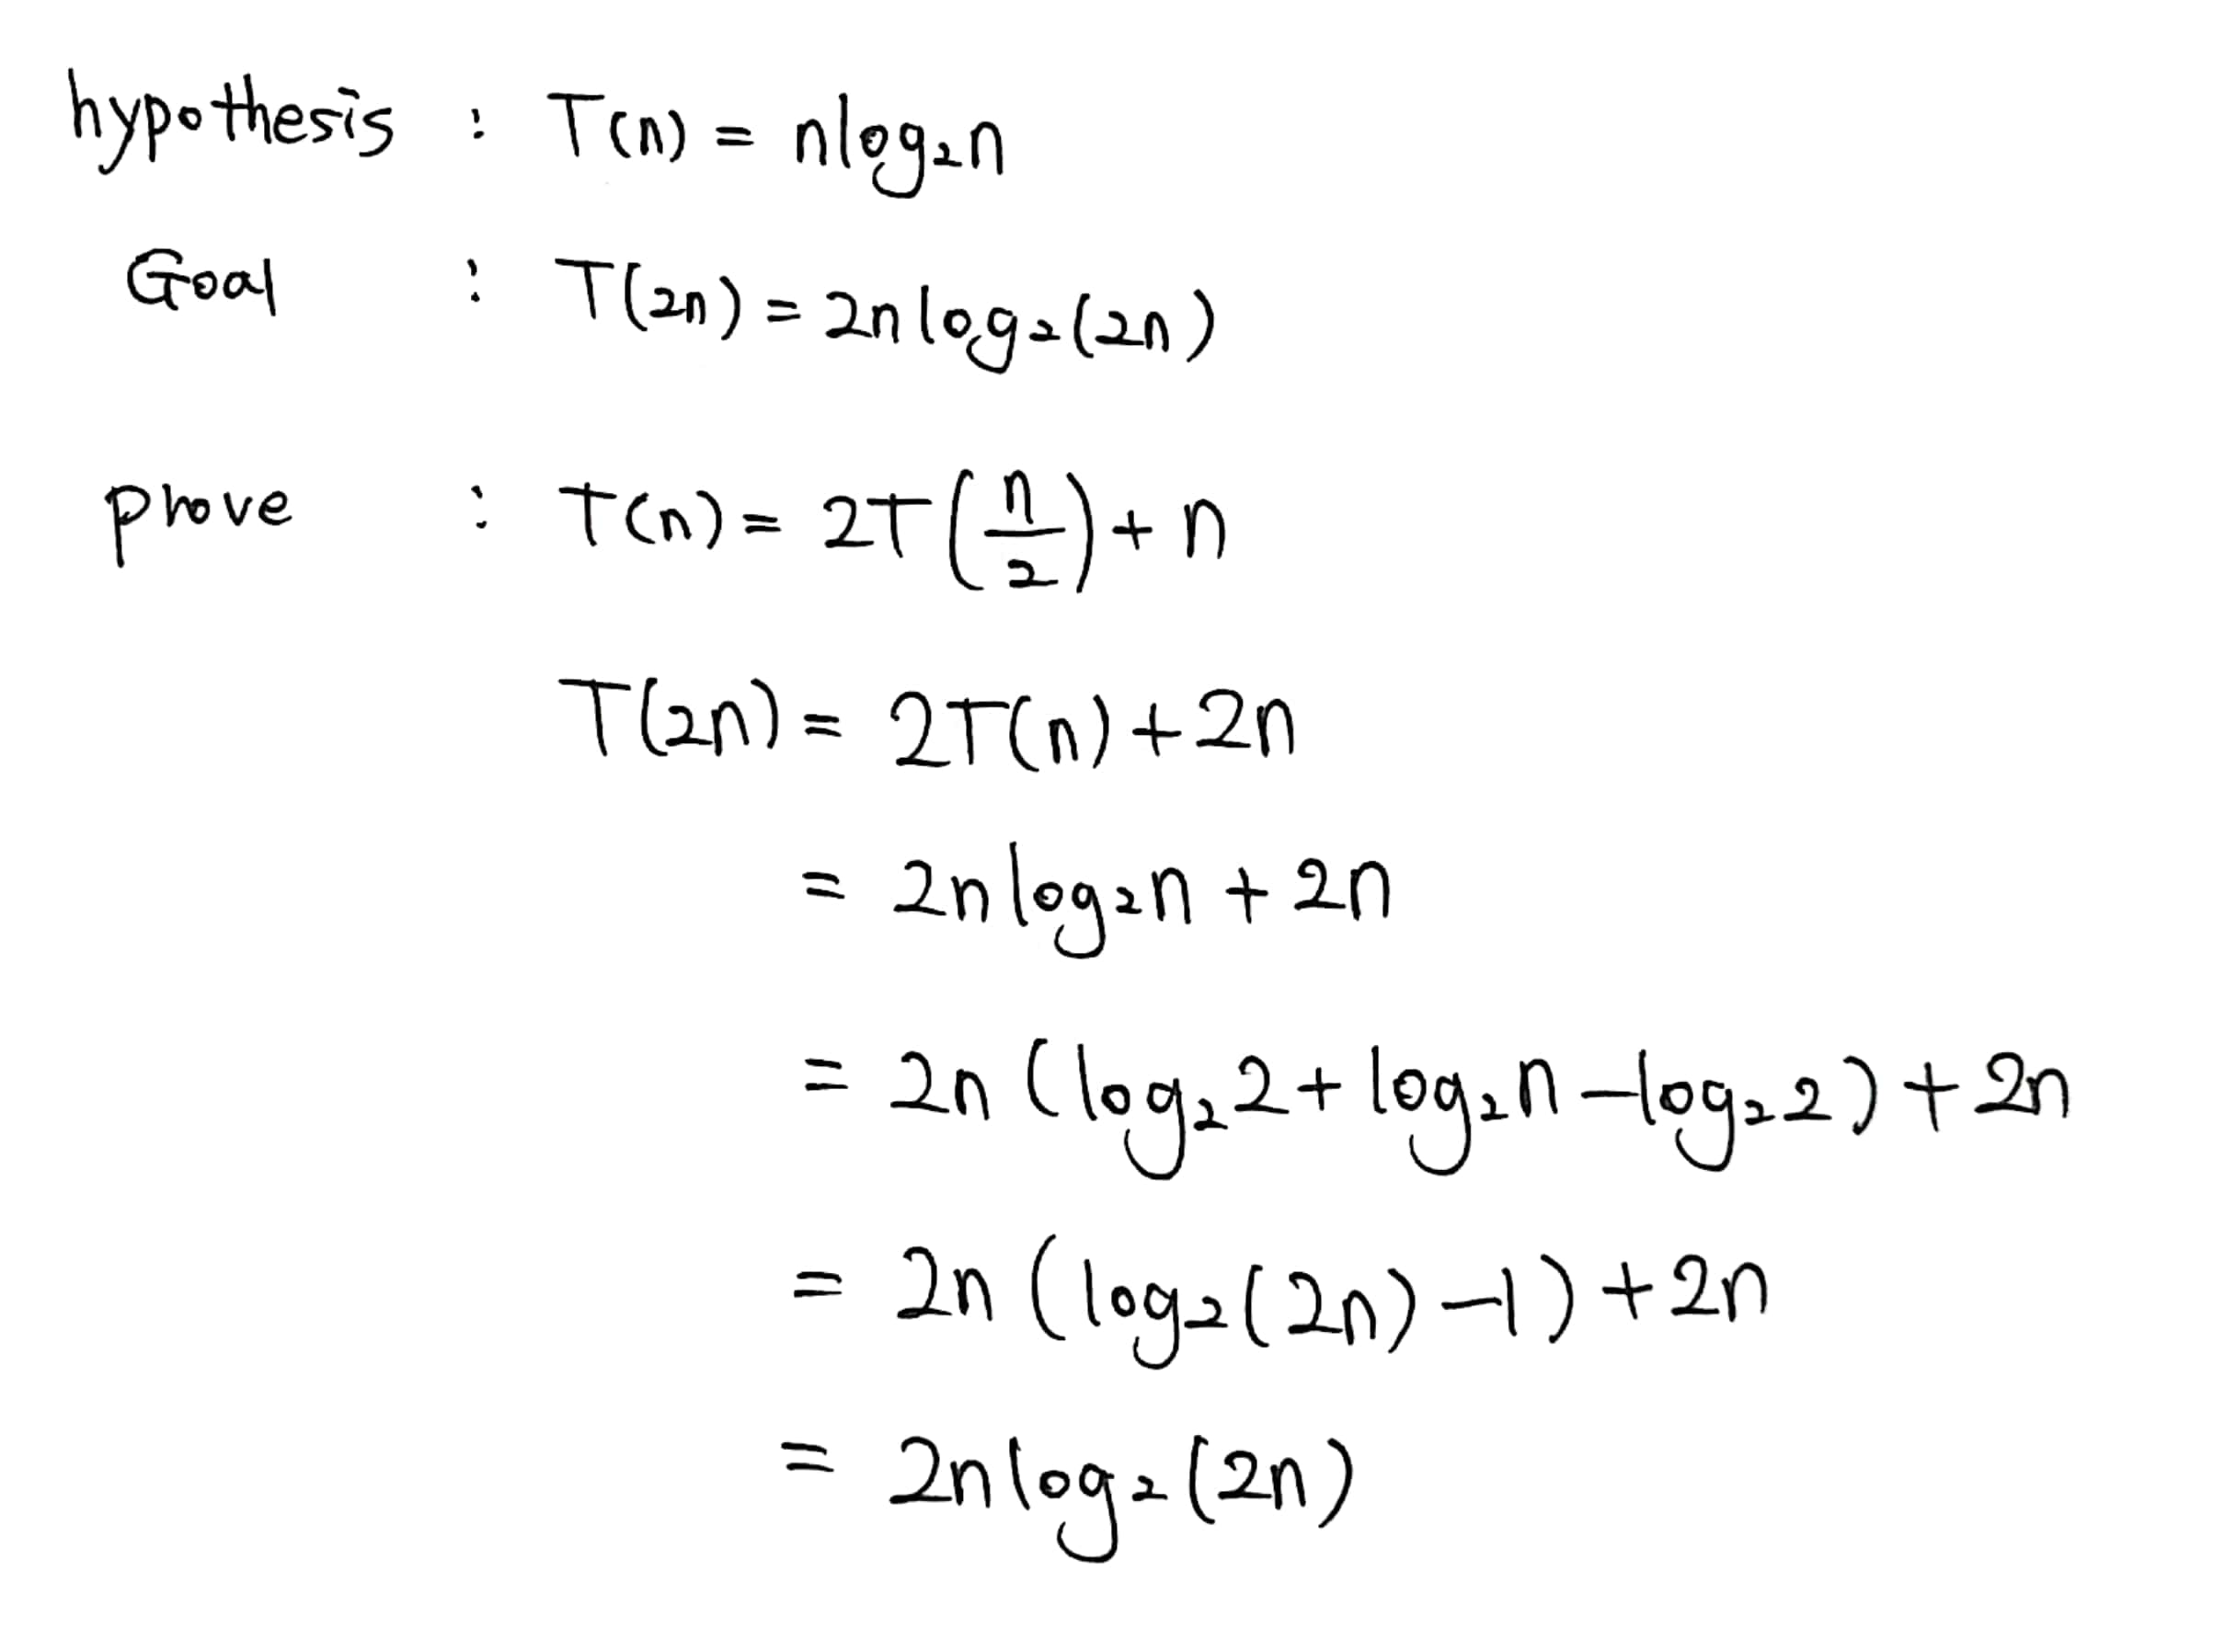 hypothesis : T(n) = nlog₂n
Goal : T(2n) = 2nlog₂(2n)
prove : T(n) = 2T(n/2) + n
T(2n) = 2T(n) + 2n
= 2nlog₂n + 2n
= 2n(log₂2 + log₂n - log₂2) + 2n
= 2n(log₂(2n) - 1) + 2n
= 2nlog₂(2n)